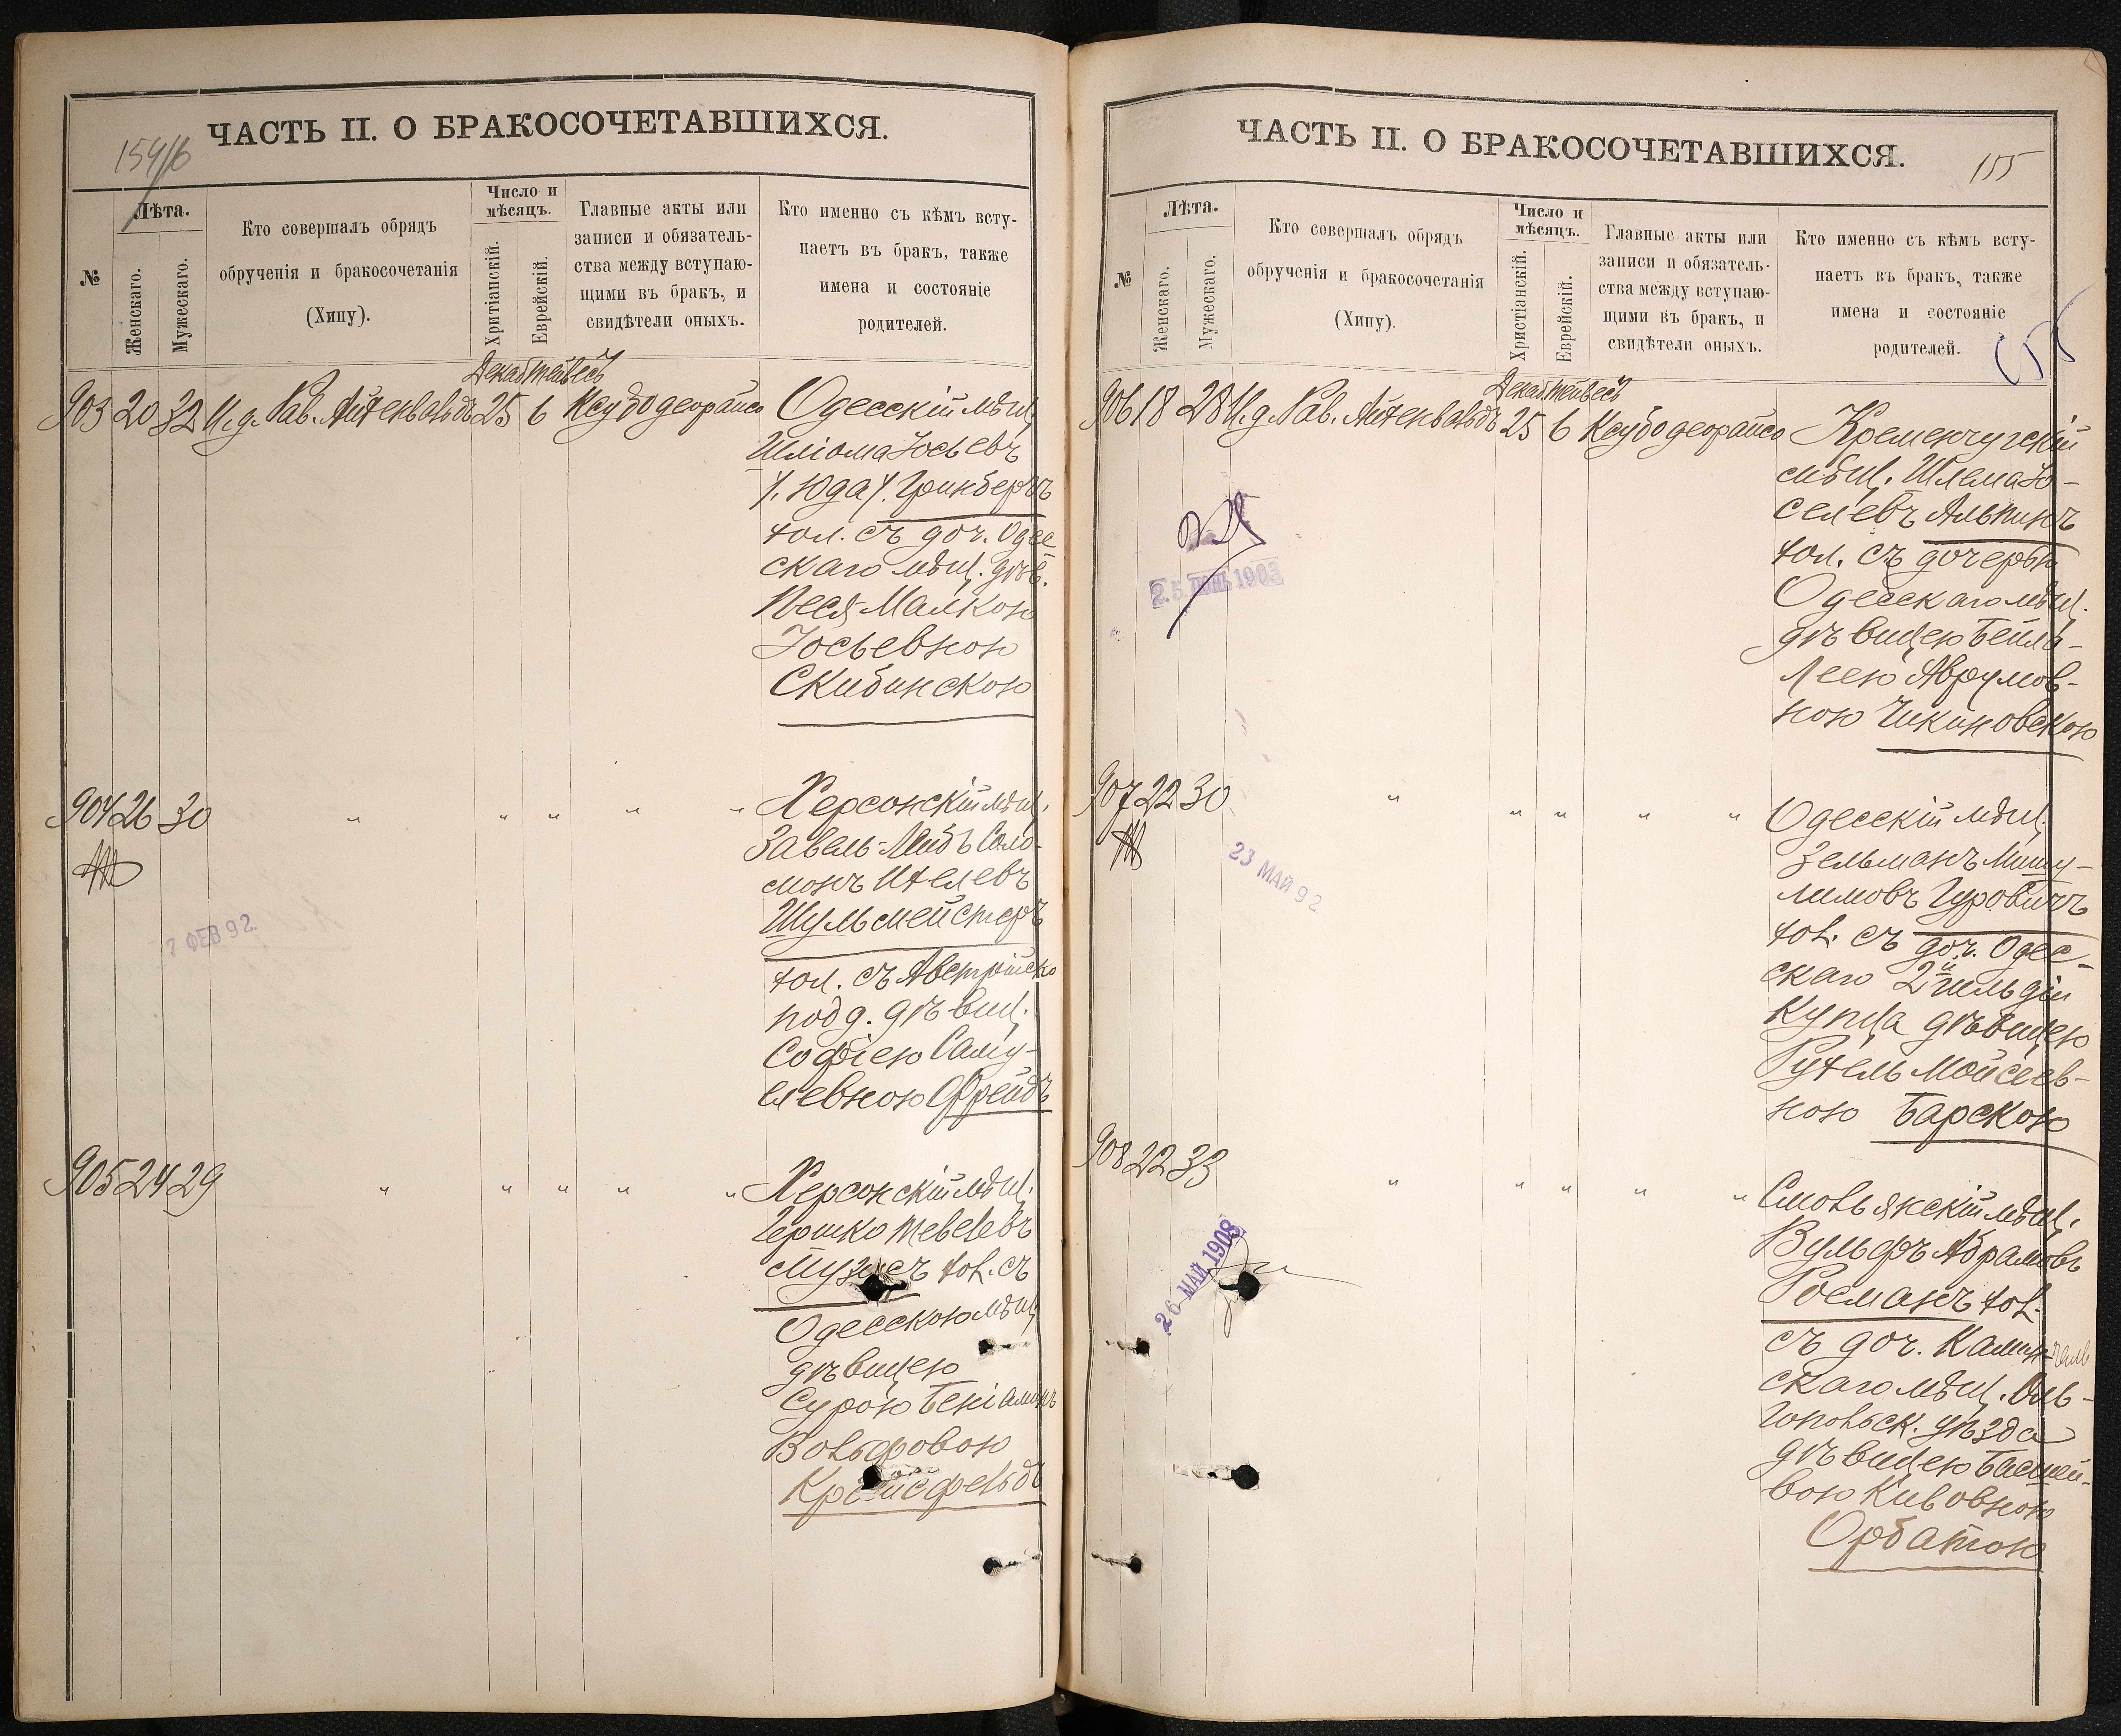 ЧАСТЬ II. О БРАКОСОЧЕТАВШИХСЯ.
№
Лѣта.
Женскаго.
Мужескаго.
Кто совершалъ обрядъ
обрученія и бракосочетанія
(Хипу).
Число и
мѣсяцъ.
Хритіанскій.
Еврейскій.
Главные акты или
записи и обязатель-
ства между вступаю-
щими въ бракъ, и
свидѣтели оныхъ.
Кто именно съ кѣмъ всту-
паетъ въ бракъ, также
имена и состояніе
родителей.
Декаб Тейвесъ
903 20 32 И.д. Рав. Айхенвальдъ 25 6 Ксубо деорайсо Одесскій мѣщ.
Шліома Іосьевъ
/. Юда /. Гринбергъ
хол. съ доч. Одес
скаго мѣщ. дѣв.
Песя-Малкою
Іосьевною
Скибинскою
904 26 30 " " " " " Херсонскій мѣщ.
Завель-Лейбъ Соло-
монъ Ицелевъ
Шульмейстеръ
хол. съ Австрійско
подд. дѣвиц.
Софіею Саму-
елевною Фрейдъ
7 ФЕВ 92
905 24 29 " " " " " Херсонскій мѣщ.
Гершко Тевелевъ
хол. съ
Одесскою мѣщ.
дѣвицею
Сурою Беніаминъ
Вольфовою
Крейсфельдъ
ЧАСТЬ II. О БРАКОСОЧЕТАВШИХСЯ.
155
№
Лѣта.
Женскаго.
Мужескаго.
Кто совершалъ обрядъ
обрученія и бракосочетанія
(Хипу).
Число и
мѣсяцъ.
Христіанскій.
Еврейскій.
Главные акты или
записи и обязатель-
ства между вступаю-
щими въ бракъ, и
свидѣтели оныхъ.
Кто именно съ кѣмъ всту-
паетъ въ бракъ, также
имена и состояніе
родителей.
Декаб Тейвесъ
906 18 28 И.д. Рав. Айхенвальдъ 25 6 Ксубо деорайсо Кременчугскій
мѣщ. Шлема Іо-
селевъ Альпинъ
хол. съ дочерью
Одесскаго мѣщ.
дѣвицею Бейля-
Леею Аврумов-
ною Чикиновскою
25 ІЮНЬ 1903
907 22 30 " " " " " Одесскій мѣщ.
Зельманъ Мишу-
лимовъ Гуровичъ
хол. съ доч. Одес-
скаго 2й гильдіи
купца дѣвицею
Рухель Мойсеев-
ною Барскою
23 МАЙ 92
908 22 33 " " " " " Смольянскій мѣщ.
Вульфъ Абрамовъ
Росманъ хол.
съ доч.
скаго мѣщ. Оль-
гопольск. уѣзда
дѣвицею Басшей-
вою Кивовною
Орбатою
26 МАЙ 1908